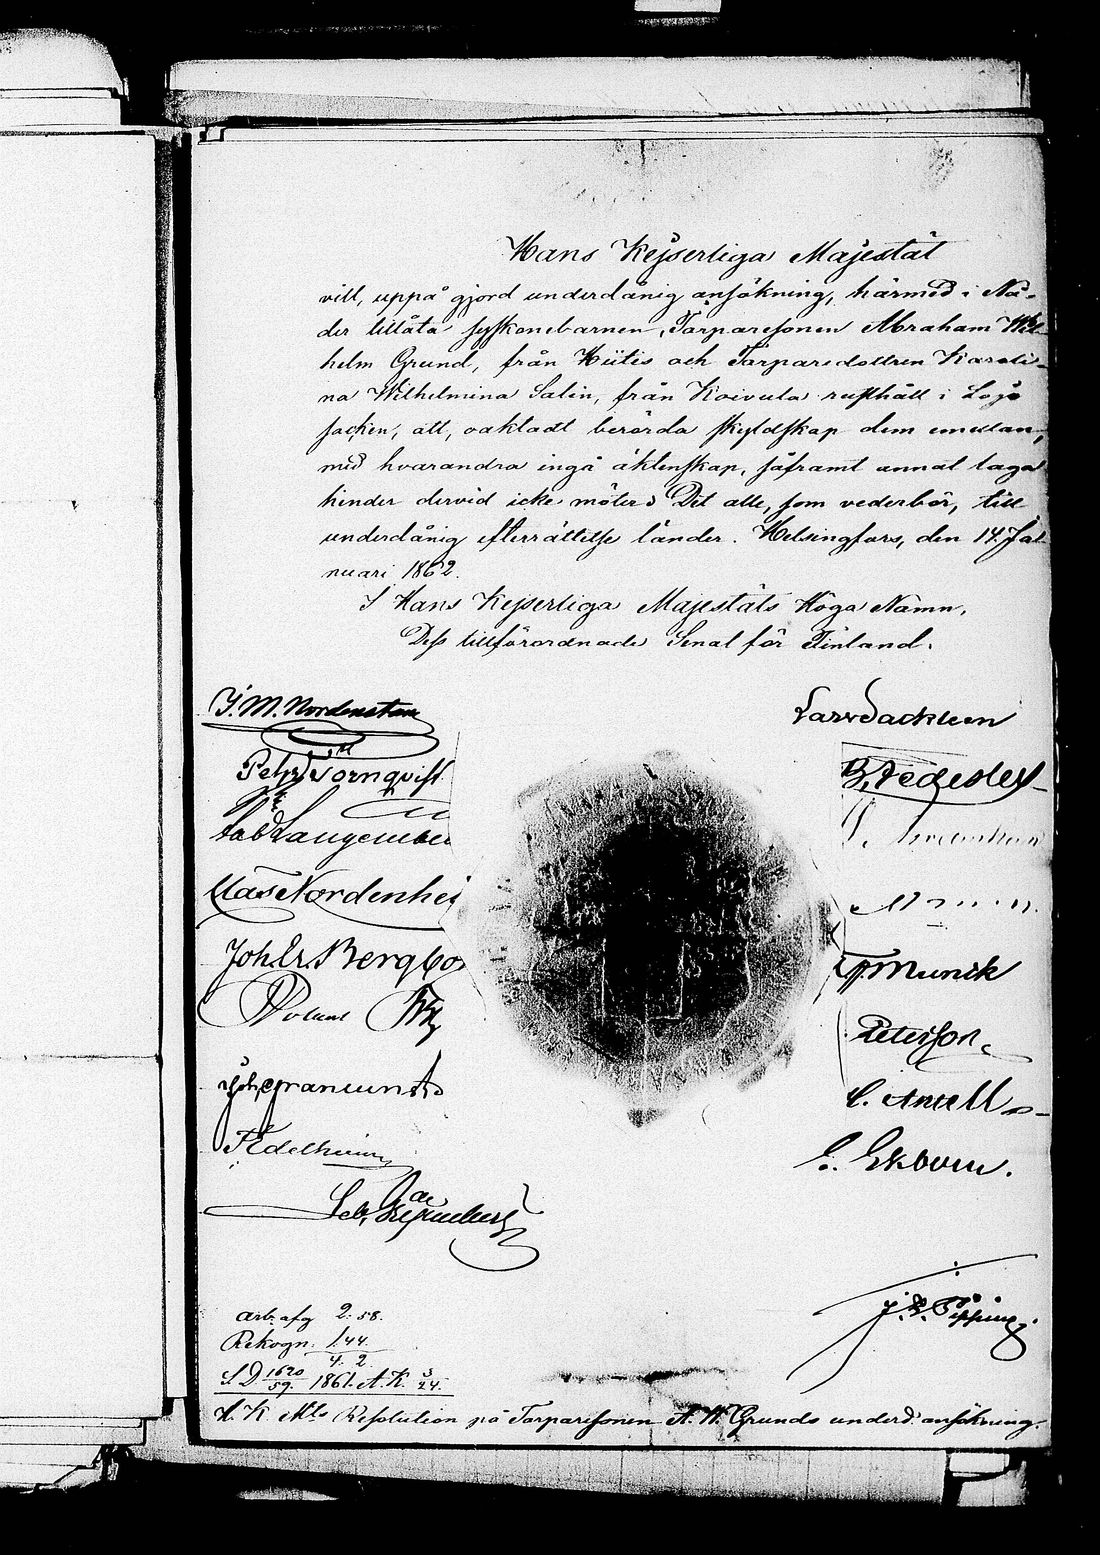 Hans Kejserliga Majestät
vill, uppå gjord underdånig ansökning, härmed i Nå-
der tillåta syskonebarnen, Torparesonen Abraham Wil-
helm Grund, från Kiitis och Torparedottren Karoli-
na Wilhelmina Salin, från Koivula rusthåll i Lojo
socken, att, oaktadt berörda skyldskap dem emellan,
med hvarandra ingå äktenskap, såframt annat laga
hinder dervid icke möter; Det alle, som vederbör, till
underdånig efterrättelse länder. Helsingfors, den 14. Ja-
nuari 1862.
I Hans Kejserliga Majestäts Höga Namn,
Dess tillförordnade Senat för Finland.
J. M. Nordenstam
Petter Törnqvist
Langenskiöld
Nordenhei
Joh. Er. Bergbo
Joh. Granlund
F. Edelheim
Munck
Peterson
C. Antell
E. Ekbom.
J. Tipping.
Arb. afg 2. 58.
Rekogn. 1.44.
4. 2.
S. D 1620/59 1861. A. K. 3/24.
H. K. Mts Resolution på Torparesonen A. W. Grunds underd. ansökning.